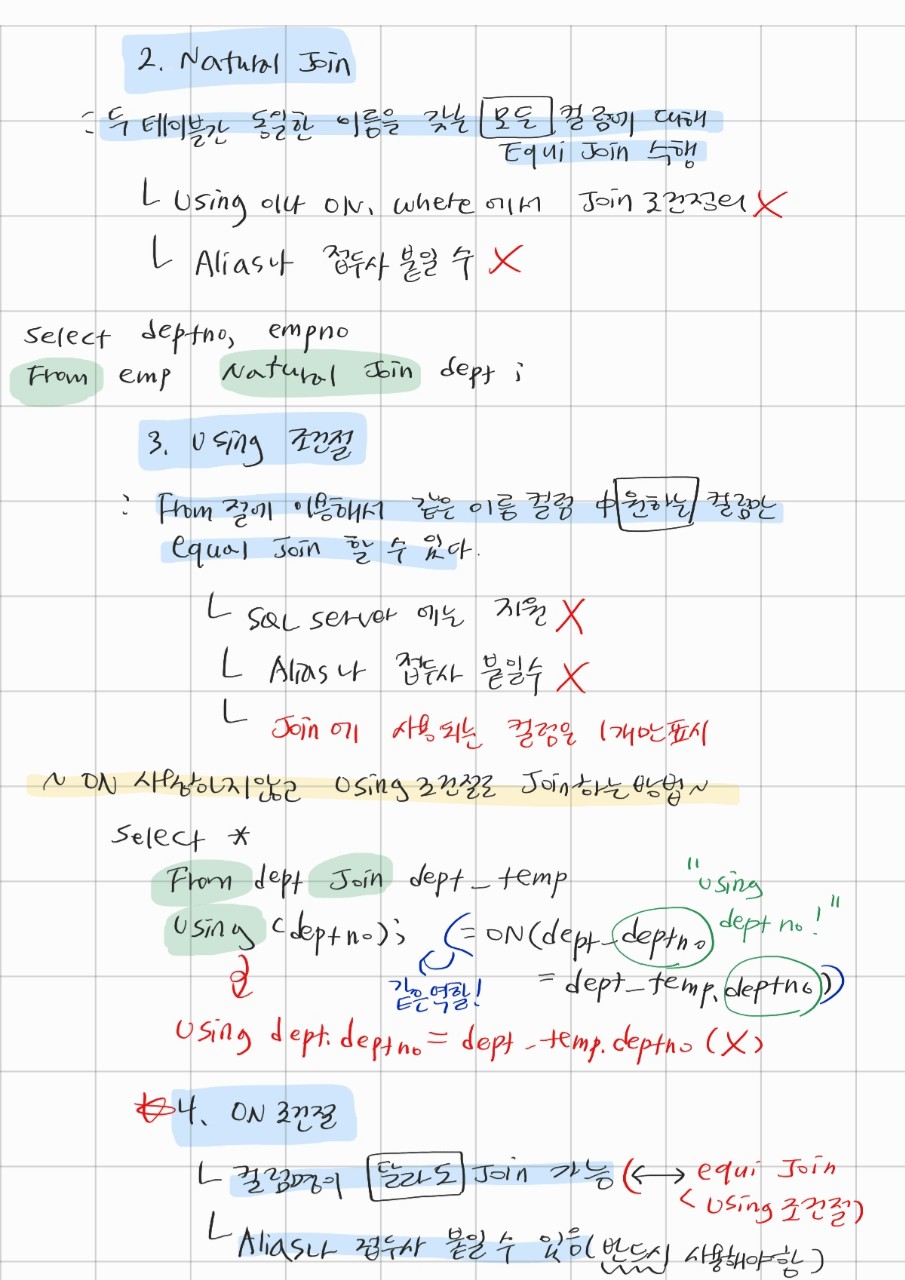 2. Natural Join
: 두 테이블간 동일한 이름을 갖는 모든 컬럼에 대해
Equi Join 수행
└ Using 이나 ON, where 에서 Join 조건정의 X
└ Alias나 접두사 붙일 수 X
Select deptno, empno
From emp Natural Join dept ;
3. Using 조건절
: From 절에 이용해서 같은 이름 컬럼 中 원하는 컬럼만
equal Join 할 수 있다.
└ SQL server 에는 지원 X
└ Alias나 접두사 붙일수 X
└ Join 에 사용되는 컬럼은 1개만 표시
~ ON 사용하지않고 Using 조건절로 Join하는 방법 ~
Select *
From dept Join dept_temp
Using (deptno); (= ON(dept_deptno
"using
dept no!"
같은역할!
= dept_temp.deptno))
Using dept.deptno = dept_temp.deptno (X)
4. ON 조건절
└ 컬럼명이 달라도 Join 가능 (↔ equi Join
< Using 조건절)
└ Alias나 접두사 붙일 수 있음(반드시 사용해야함)